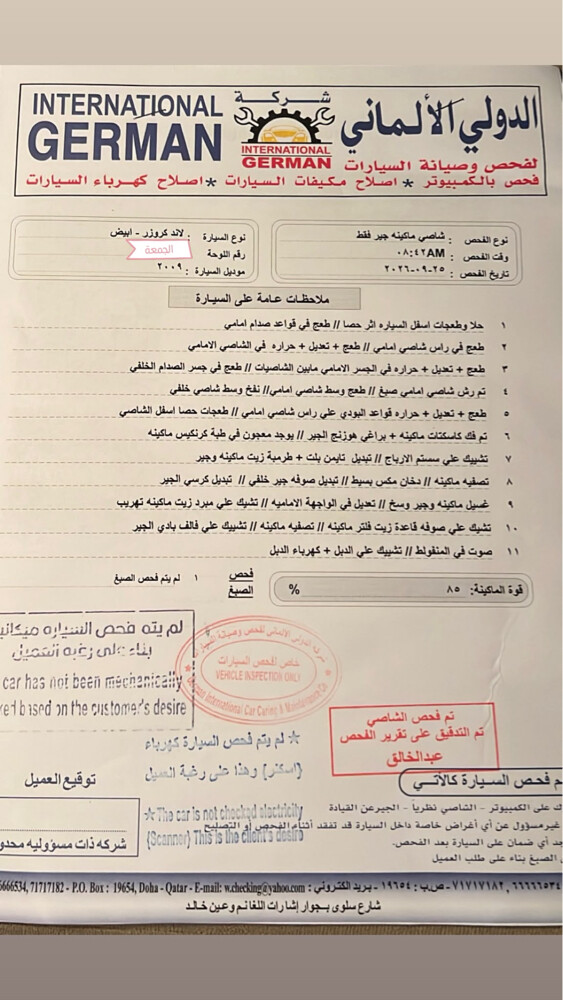 INTERNATIONAL
GERMAN
شركة
INTERNATIONAL
GERMAN
الدولي الألماني
لفحص وصيانة السيارات
فحص بالكمبيوتر * اصلاح مكيفات السيارات * اصلاح كهرباء السيارات
نوع الفحص : شاصي ماكينه جير فقط
وقت الفحص : ٠٨:٤٢AM
تاريخ الفحص : ٢٠٢٦-٠٩-٢٥
نوع السيارة : لاند كروزر - ابيض
رقم اللوحة
الجمعة
موديل السيارة : ٢٠٠٩
ملاحظات عامة على السيارة
١ حلا وطعجات اسفل السياره اثر حصا // طعج في قواعد صدام امامي
٢ طعج في راس شاصي امامي // طعج + تعديل + حراره في الشاصي الامامي
٣ طعج + تعديل + حراره في الجسر الامامي مابين الشاصيات // طعج في جسر الصدام الخلفي
٤ تم رش شاصي امامي صبغ // طعج وسط شاصي امامي// نفخ وسط شاصي خلفي
٥ طعج + تعديل + حراره قواعد البودي علي راس شاصي امامي // طعجات حصا اسفل الشاصي
٦ تم فك كاسكتات ماكينه + براغي هوزنج الجير // يوجد معجون في طبة كرنكيس ماكينه
٧ تشييك علي سستم الارباج // تبديل تايمن بلت + طرمبة زيت ماكينه وجير
٨ تصفيه ماكينه // دخان مكس بسيط // تبديل صوفه جير خلفي // تبديل كرسي الجير
٩ غسيل ماكينه وجير وسخ // تعديل في الواجهة الاماميه // تشيك علي مبرد زيت ماكينه تهريب
١٠ تشيك علي صوفه قاعدة زيت فلتر ماكينه // تصفيه ماكينه // تشييك علي فالف بادي الجير
١١ صوت في المنفولط // تشييك علي الدبل + كهرباء الدبل
قوة الماكينة: ٨٥ %
فحص الصبغ
١ لم يتم فحص الصبغ
لم يتم فحص السياره ميكاني
بناء على رغبة العميل
car has not been mechanically
ked based on the customer's desire
شركة الدولي الألماني لفحص وصيانة السيارات
خاص لفحص السيارات
VEHICLE INSPECTION ONLY
German International Car Caring & Maintenance Co.
تم فحص الشاصي
تم التدقيق على تقرير الفحص
عبدالخالق
* لم يتم فحص السيارة كهرباء
{اسكنر} وهذا على رغبة العميل
* The car is not checked electricity
{Scanner} This is the client's desire
م فحص السيارة كالآتي
ك على الكمبيوتر - الشاصي نظرياً - الجيرعن القيادة
غيرمسؤول عن أي أغراض خاصة داخل السيارة قد تفقد أثناء الفحص أو التصليح
جد أي ضمان على السيارة بعد الفحص.
الصبغ بناء على طلب العميل
توقيع العميل
شركة ذات مسؤوليه محدو
6666534, 71717182 - P.O. Box : 19654, Doha - Qatar - E-mail: w.checking@yahoo.com : ٦٦٦٦٦٥٣٤, ٧١٧١٧١٨٢ - ص.ب: ١٩٦٥٤ - بريد الكتروني
شارع سلوى بجوار إشارات اللغانم وعين خالد